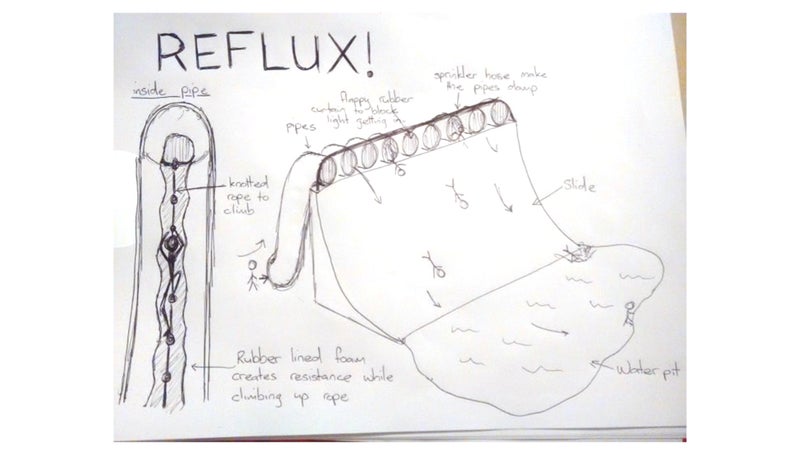 REFLUX!
inside pipe
knotted
rope to
climb
Rubber lined foam
creates resistance while
climbing up rope
pipes
flappy rubber
curtain to block
light getting in
sprinkler hose make
the pipes damp
slide
Water pit